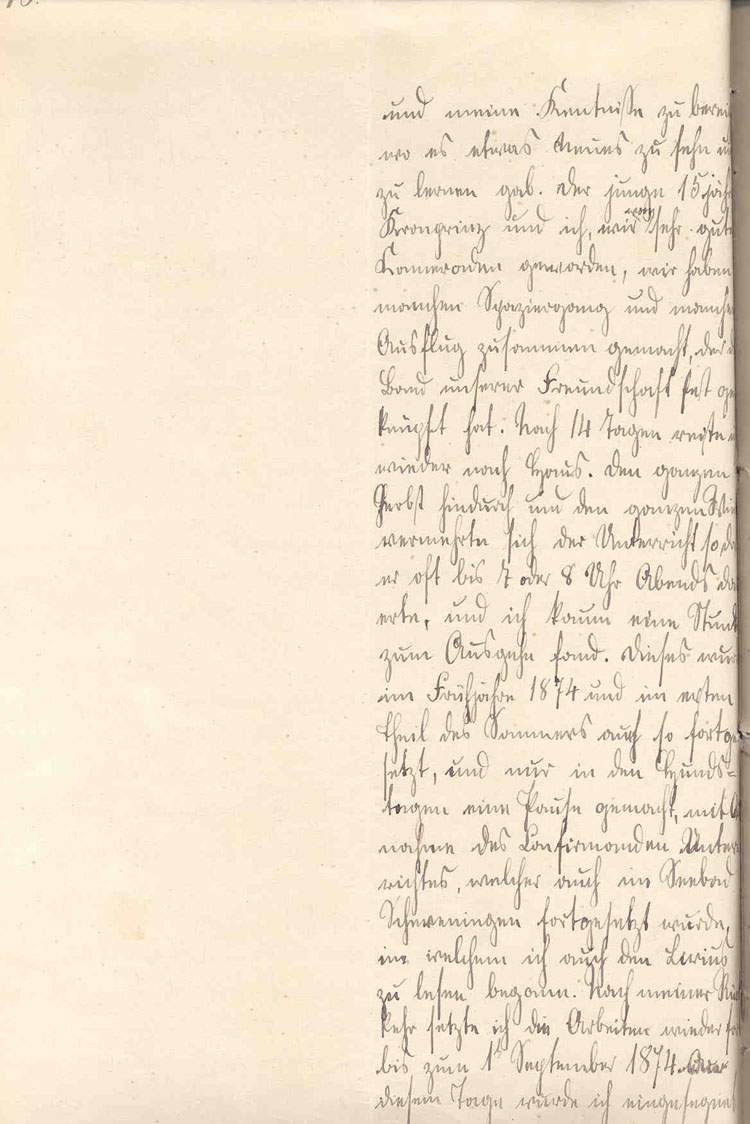 und meine Kentnisse zu berei
wo es etwas Neues zu sehn u
zu lernen gab. Der junge 15 jäh
Kronprinz und ich, wir sehr gut
Kameraden geworden, wir haben
manchen Spaziergang und manche
Ausflug zusammen gemacht, der d
Band unserer Freundschaft fest ge
knüpft hat. Nach 14 Tagen reiste
wieder nach Haus. Den ganzen
Herbst hindurch und den ganzen Win
vermehrte sich der Unterricht so, da
er oft bis 7 oder 8 Uhr Abends da
erte, und ich kaum eine Stund
zum Ausgehn fand. Dieses wur
im Frühjahre 1874 und im ersten
Theil des Sommers auch so fortge
setzt, und nur in den Hunds-
tagen eine Pause gemacht, mit A
nahme des Confirmanden Unter
richtes, welcher auch im Seebad
Scheveningen fortgesetzt wurde,
in welchem ich auch den Livius
zu lesen begann. Nach meiner Rü
kehr setzte ich die Arbeiten wieder fo
bis zum 1t September 1874. An
diesem Tage wurde ich eingesegnet